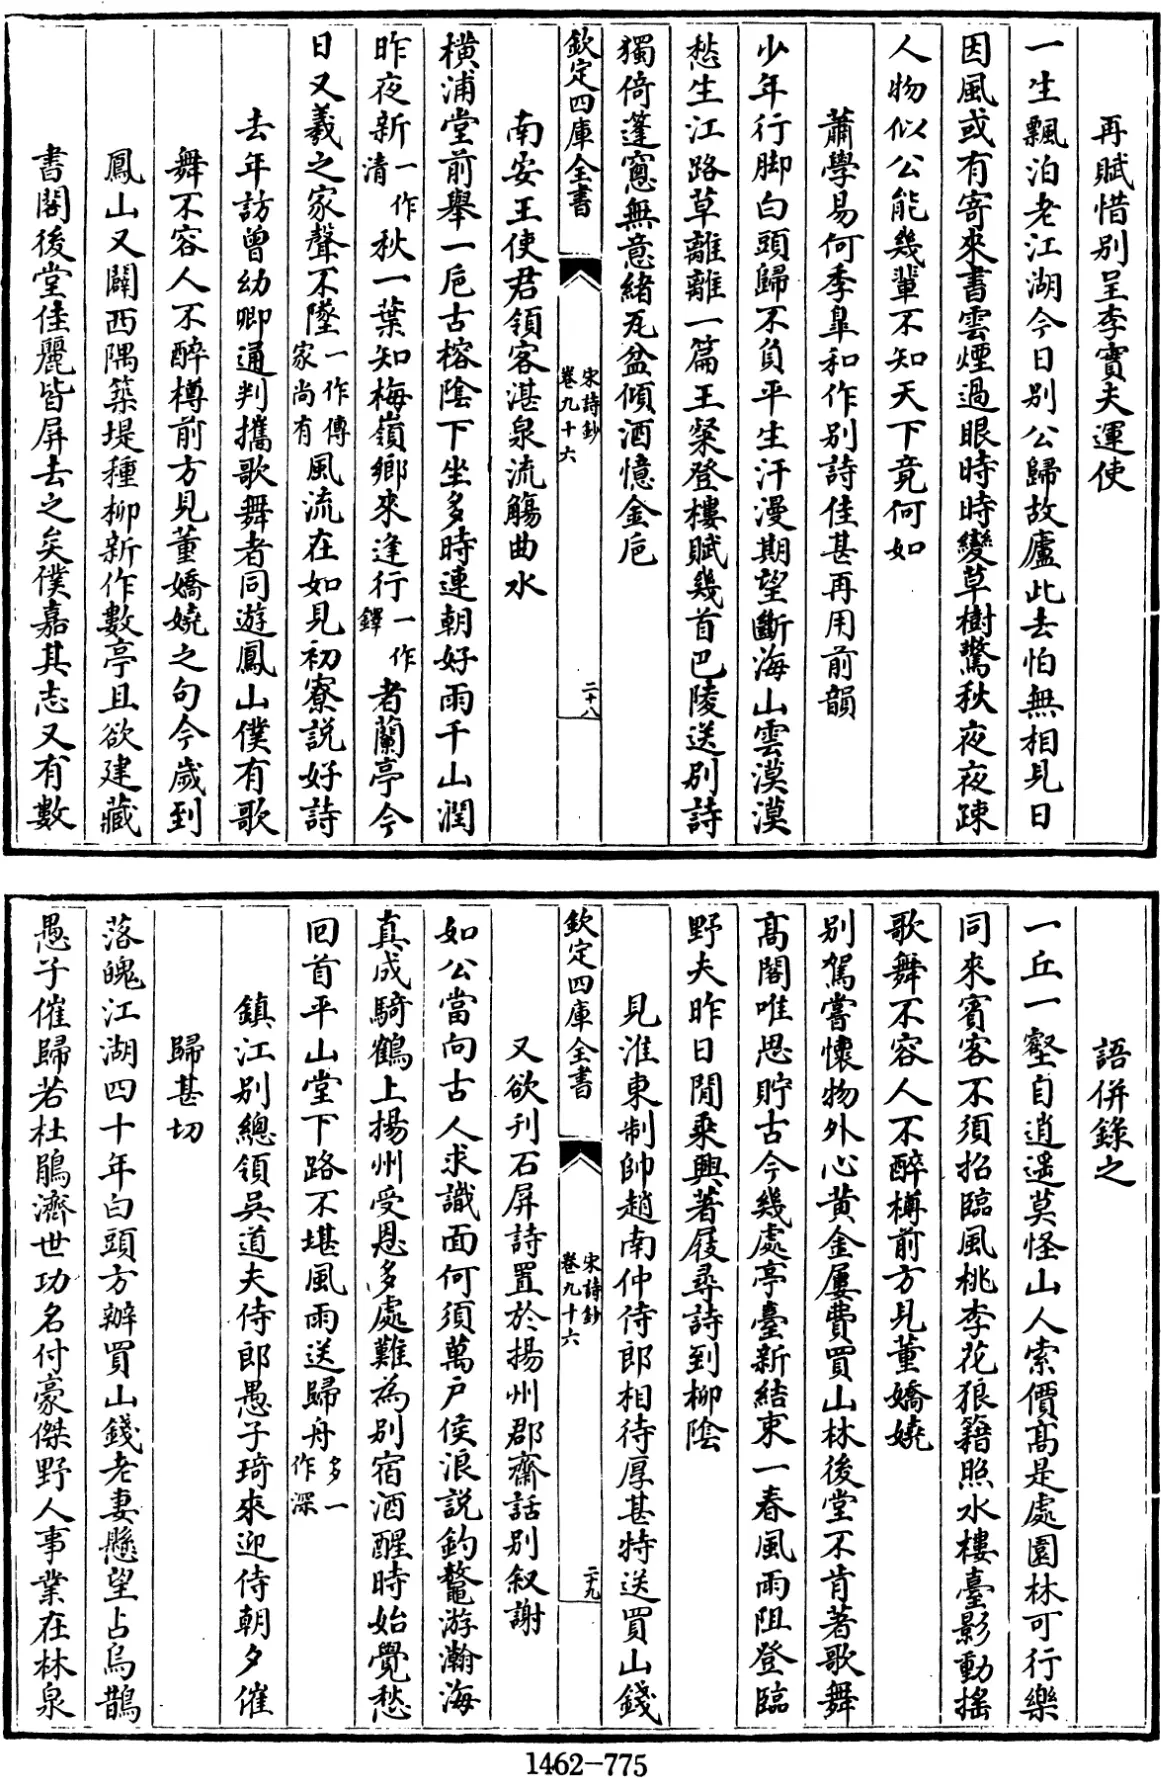 再賦惜別呈李實夫運使
一生飄泊老江湖今日別公歸故廬此去怕無相見日
因風或有寄來書雲煙過眼時時變草樹驚秋夜夜疎
人物似公能幾輩不知天下竟何如
蕭學易何季臯和作別詩佳甚再用前韻
少年行脚白頭歸不負平生汗漫期望斷海山雲漠漠
愁生江路草離離一篇王粲登樓賦幾首巴陵送別詩
獨倚蓬窻無意緒瓦盆傾酒憶金巵
欽定四庫全書
宋詩鈔
卷九十六
二十八
南安王使君領客湛泉流觴曲水
橫浦堂前舉一巵古榕陰下坐多時連朝好雨千山潤
昨夜新一作清秋一葉知梅嶺鄉來逢行一作鐸者蘭亭今
日又羲之家聲不墜一作傳家尚有風流在如見初寮説好詩
去年訪曾幼卿通判攜歌舞者同遊鳳山僕有歌
舞不容人不醉樽前方見董嬌嬈之句今歲到
鳳山又闢西隅築堤種柳新作數亭且欲建藏
書閣後堂佳麗皆屏去之矣僕嘉其志又有數
語併錄之
一丘一壑自逍遥莫怪山人索價高是處園林可行樂
同來賓客不須招臨風桃李花狼籍照水樓臺影動搖
歌舞不容人不醉樽前方見董嬌嬈
別駕嘗懷物外心黄金屢費買山林後堂不肯著歌舞
高閣唯思貯古今幾處亭臺新結束一春風雨阻登臨
野夫昨日閒乘興著屐尋詩到柳陰
見淮東制帥趙南仲侍郎相待厚甚特送買山錢
欽定四庫全書
宋詩鈔
卷九十六
二十九
又欲刋石屏詩置於揚州郡齋話別叙謝
如公當向古人求識面何須萬户侯浪説釣鼇游瀚海
真成騎鶴上揚州受恩多處難為別宿酒醒時始覺愁
回首平山堂下路不堪風雨送歸舟多一作深
鎮江別總領吳道夫侍郎愚子琦來迎侍朝夕催
歸甚切
落魄江湖四十年白頭方辦買山錢老妻懸望占烏鵲
愚子催歸若杜鵑濟世功名付豪傑野人事業在林泉
1462-775